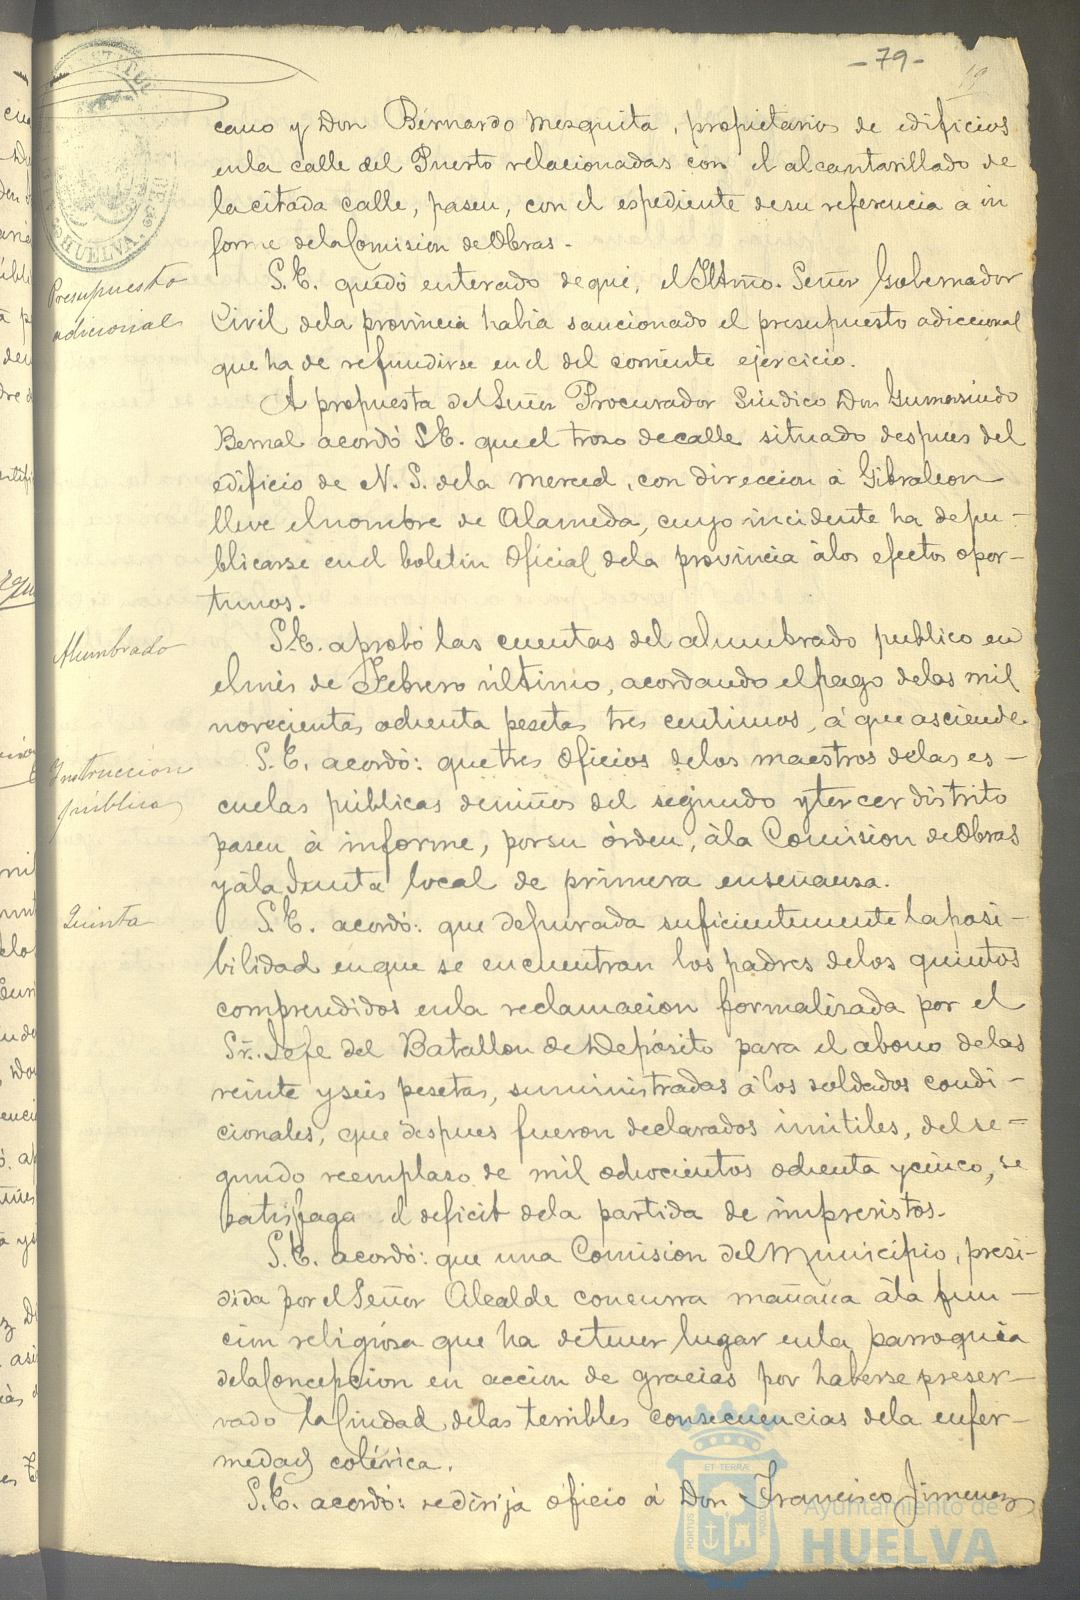 -79-
19
cano y Don Bernardo Mezquita, propietarios de edificios
enla calle del Puerto relacionadas con el alcantarillado de
la citada calle, pasen, con el espediente desu referencia á in
forme dela Comision de Obras.
Presupuesto
adicional
S.E. quedó enterado deque, el Iltmo. Señor Gobernador
Civil dela provincia habia sancionado el presupuesto adiccional
que ha de refundirse en el del corriente ejercicio.
A propuesta del Señor Procurador Sindico Don Gumersindo
Bernal acordó S.E. que el trozo de calle situado despues del
edificio de N. S. dela Merced, con direccion á Gibraleon
lleve el nombre de Alameda, cuyo incidente ha de pu-
blicarse en el boletin Oficial dela provincia álos efectos opor-
tunos.
Alumbrado
S.E. aprobó las cuentas del alumbrado publico en
el mes de Febrero último, acordando el pago delas mil
novecientas ochenta pesetas tres centimos, á que asciende
Instrucción
pública
S.E. acordó: que tres oficios delos maestros delas es-
cuelas públicas deniños del segundo y tercer distrito
pasen á informe, porsu órden, ála Comision de Obras
y ála Junta local de primera enseñanza.
Quinta
S.E. acordó: que depurada suficientemente la posi-
bilidad en que se encuentran los padres delos quintos
comprendidos enla reclamacion formalizada por el
Sr. Jefe del Batallon de Depósito para el abono delas
veinte y seis pesetas, suministradas á los soldados condi-
cionales, que despues fueron declarados inútiles, del se-
gundo reemplazo de mil ochocientos ochenta y cinco, se
satisfaga el deficit dela partida de imprevistos.
S.E. acordó: que una Comision del Municipio, presi-
dida por el Señor Alcalde concurra mañana ála fun-
cion religiosa que ha de tener lugar enla parroquia
dela Concepcion en accion de gracias por haberse preser-
vado la Ciudad delas terribles consecuencias dela enfer-
medad colérica.
S.E. acordó: se dirija oficio á Don Francisco Jimenez
HUELVA
ET TERRÆ
PORTUS
CUSTODIA
Ayuntamiento de
HUELVA